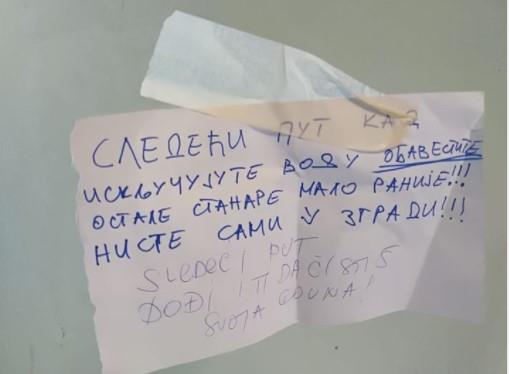 СЛЕДЕЋИ ПУТ КАД
ИСКЉУЧУЈУТЕ ВОДУ ОБАВЕСТИТЕ
ОСТАЛЕ СТАНАРЕ МАЛО РАНИЈЕ!!!
НИСТЕ САМИ У ЗГРАДИ!!!
SLEDEĆI PUT
DOĐI I TI DA ČISTIŠ
SVOJA GOVNA!